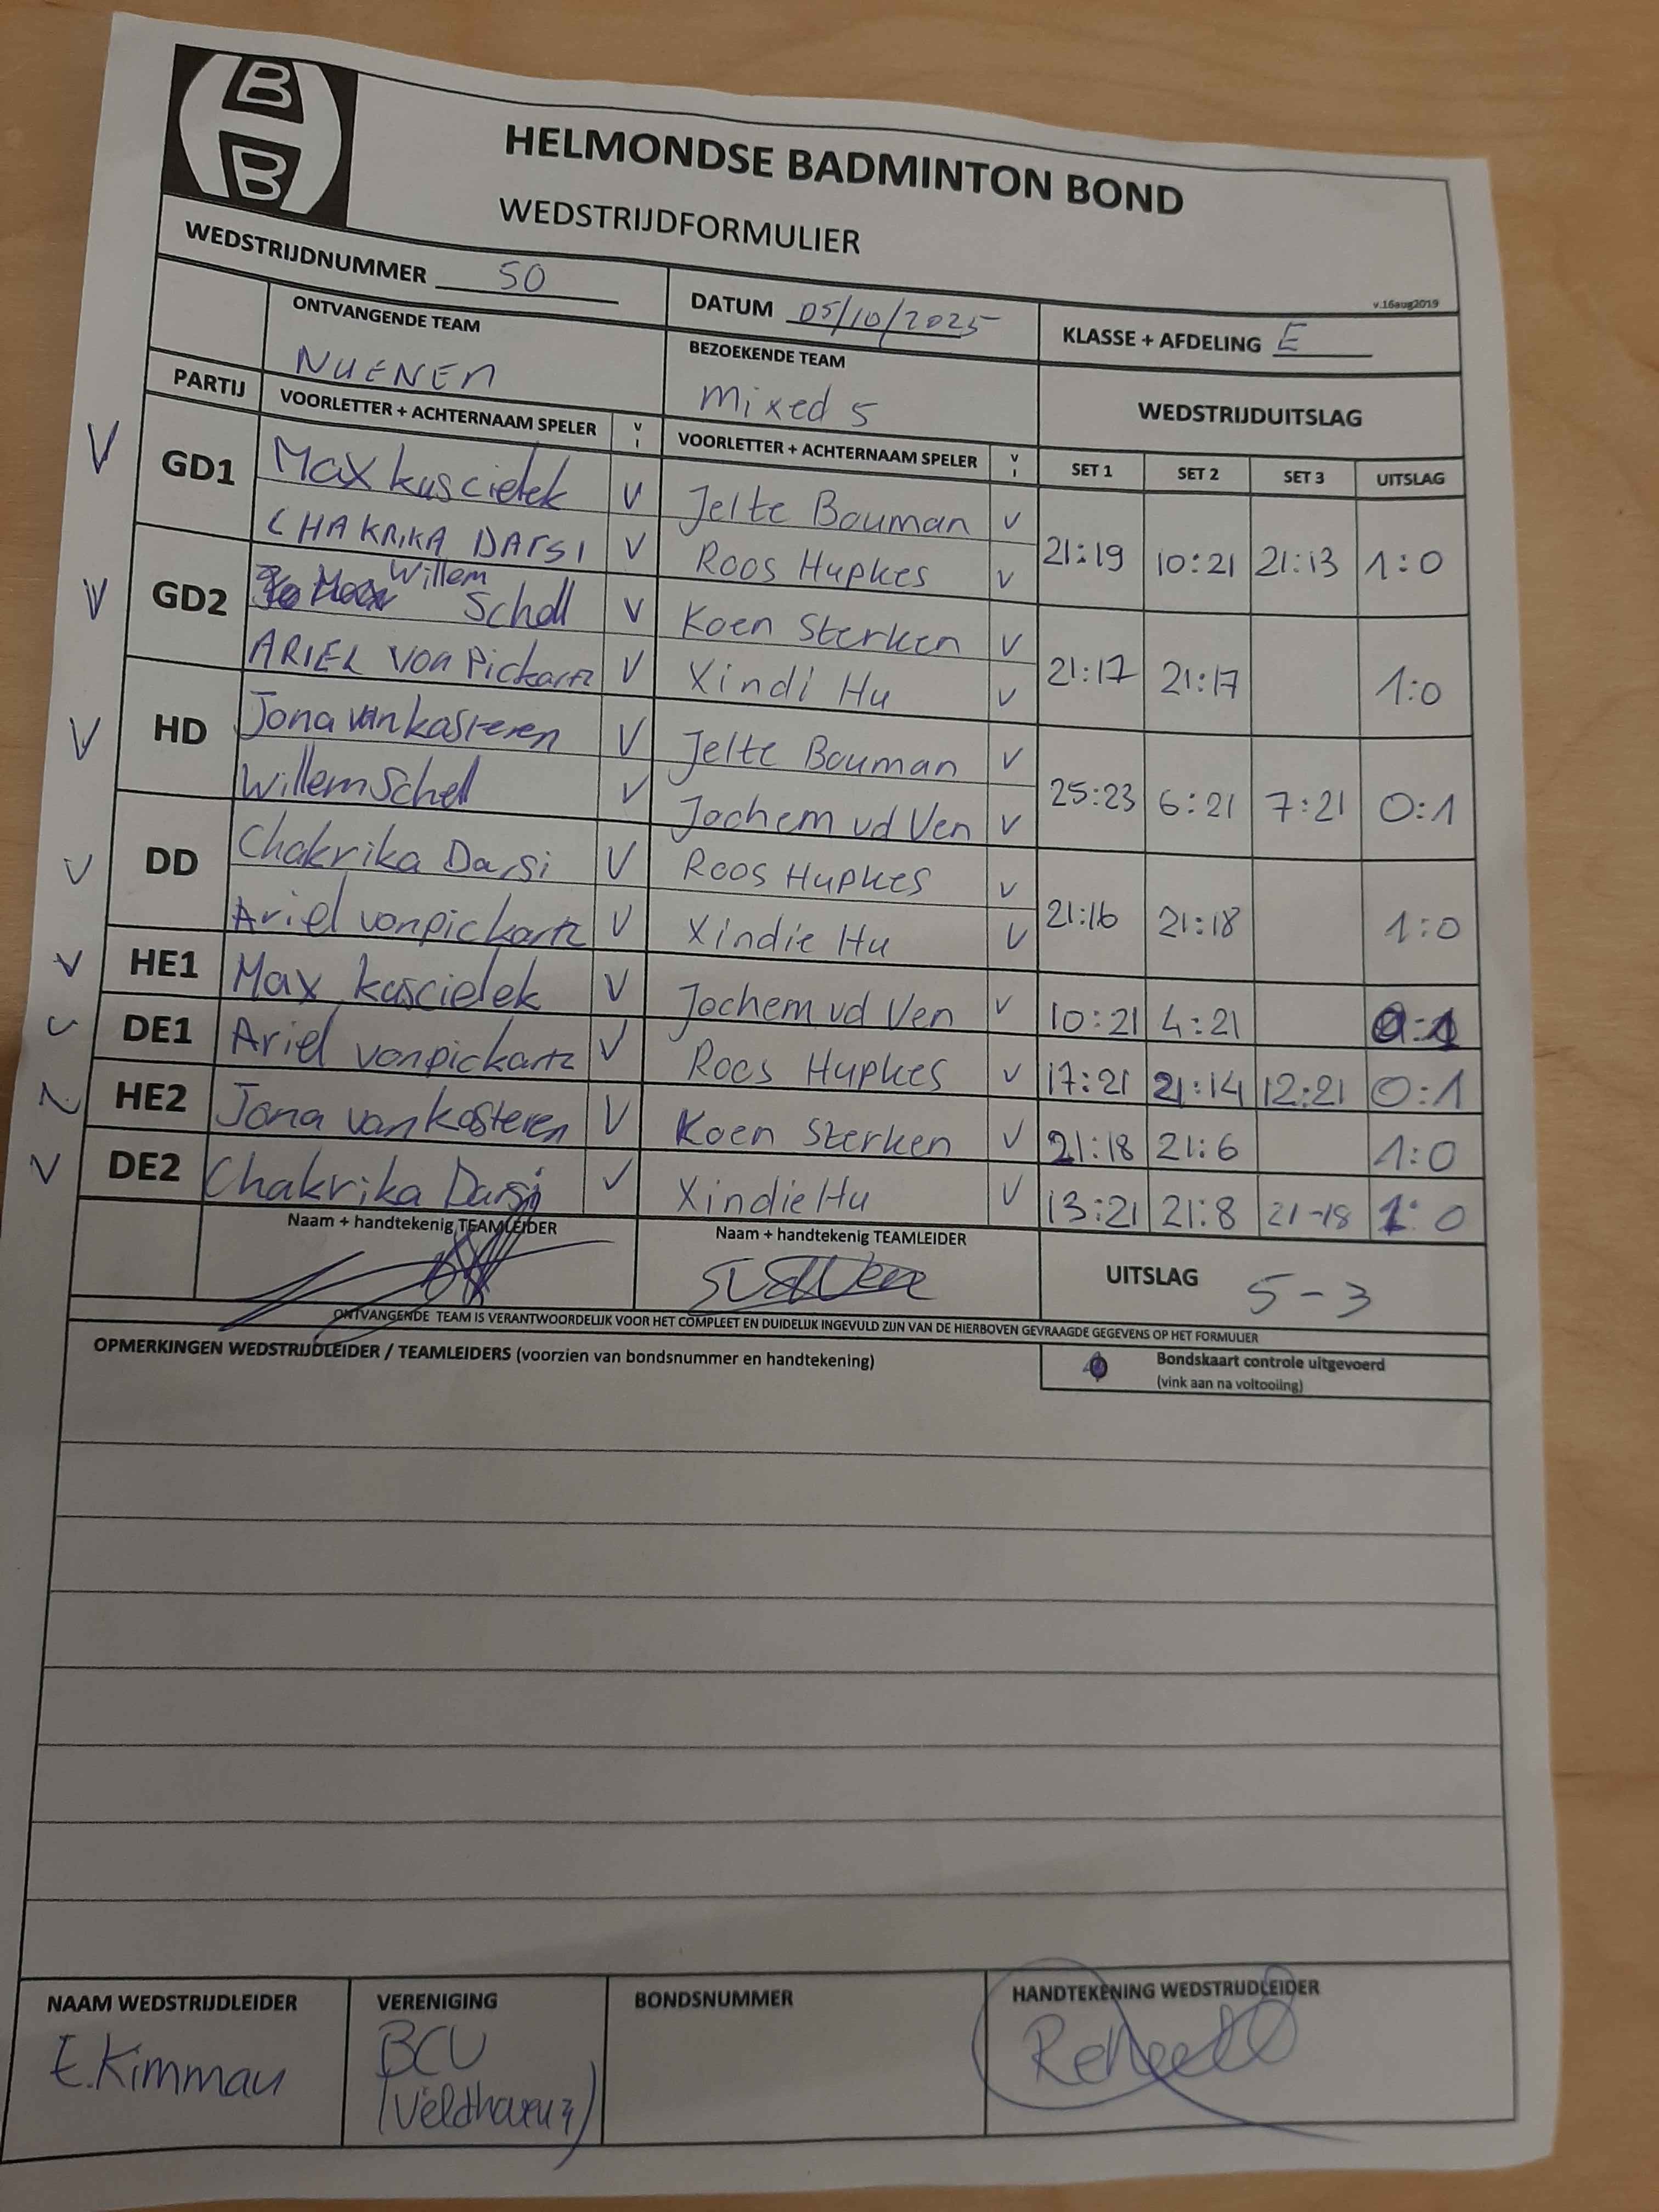 B
B
HELMONDSE BADMINTON BOND
WEDSTRIJDFORMULIER
v.16aug2019
WEDSTRIJDNUMMER 50
DATUM 05/10/2025
KLASSE + AFDELING E
ONTVANGENDE TEAM
NUENEN
BEZOEKENDE TEAM
Mixed 5
WEDSTRIJDUITSLAG
PARTIJ VOORLETTER + ACHTERNAAM SPELER V I VOORLETTER + ACHTERNAAM SPELER V I SET 1 SET 2 SET 3 UITSLAG
V GD1 Max kuscielek V Jelte Bouman V
CHAKRIKA DARSI V Roos Hupkes V 21:19 10:21 21:13 1:0
V GD2 Willem Schell V Koen Sterken V
ARIEL von Pickartz V Xindi Hu V 21:17 21:17 1:0
V HD Jona van kasteren V Jelte Bouman V
Willem Schell V Jochem vd Ven V 25:23 6:21 7:21 0:1
V DD Chakrika Darsi V Roos Hupkes V
Ariel vonpickartz V Xindie Hu V 21:16 21:18 1:0
V HE1 Max kuscielek V Jochem vd Ven V 10:21 4:21 0:1
V DE1 Ariel vonpickartz V Roos Hupkes V 17:21 21:14 12:21 0:1
V HE2 Jona van kasteren V Koen Sterken V 21:18 21:6 1:0
V DE2 Chakrika Darsi V Xindie Hu V 13:21 21:8 21-18 1:0
Naam + handtekenig TEAMLEIDER
Naam + handtekenig TEAMLEIDER
UITSLAG 5-3
ONTVANGENDE TEAM IS VERANTWOORDELIJK VOOR HET COMPLEET EN DUIDELIJK INGEVULD ZIJN VAN DE HIERBOVEN GEVRAAGDE GEGEVENS OP HET FORMULIER
OPMERKINGEN WEDSTRIJDLEIDER / TEAMLEIDERS (voorzien van bondsnummer en handtekening)
Bondskaart controle uitgevoerd
(vink aan na voltooiing)
NAAM WEDSTRIJDLEIDER
E.Kimman
VERENIGING
BCV
(Veldhoven)
BONDSNUMMER
HANDTEKENING WEDSTRIJDLEIDER